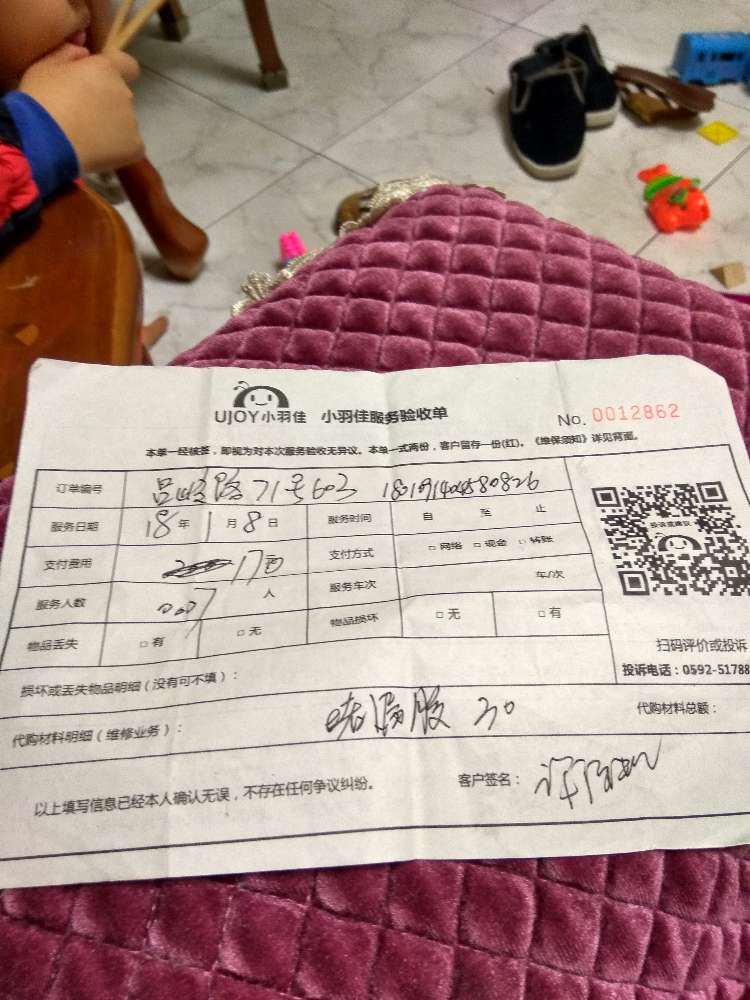 UJOY小羽佳 小羽佳服务验收单 No. 0012862
本单一经核签,即视为对本次服务验收无异议。本单一式两份,客户留存一份(红)。《维保须知》详见背面。
订单编号 吕岭路71号603
服务日期 18年1月8日 服务时间 自 至 止
投诉或建议
支付费用 170 支付方式 □网络 □现金 □转账
服务人数 007 人 服务车次 车/次
物品丢失 □有 □无 物品损坏 □无 □有
扫码评价或投诉
投诉电话:0592-51788
损坏或丢失物品明细(没有可不填):
代购材料明细(维修业务): 30 代购材料总额:
以上填写信息已经本人确认无误,不存在任何争议纠纷。 客户签名: